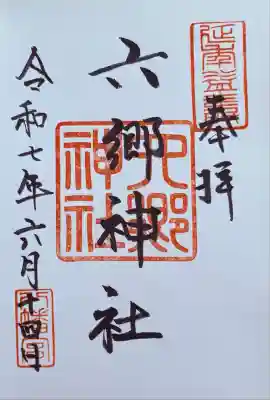 延年益壽
奉拝
六郷神社
六郷神社
令和七年六月十四日
八幡宮